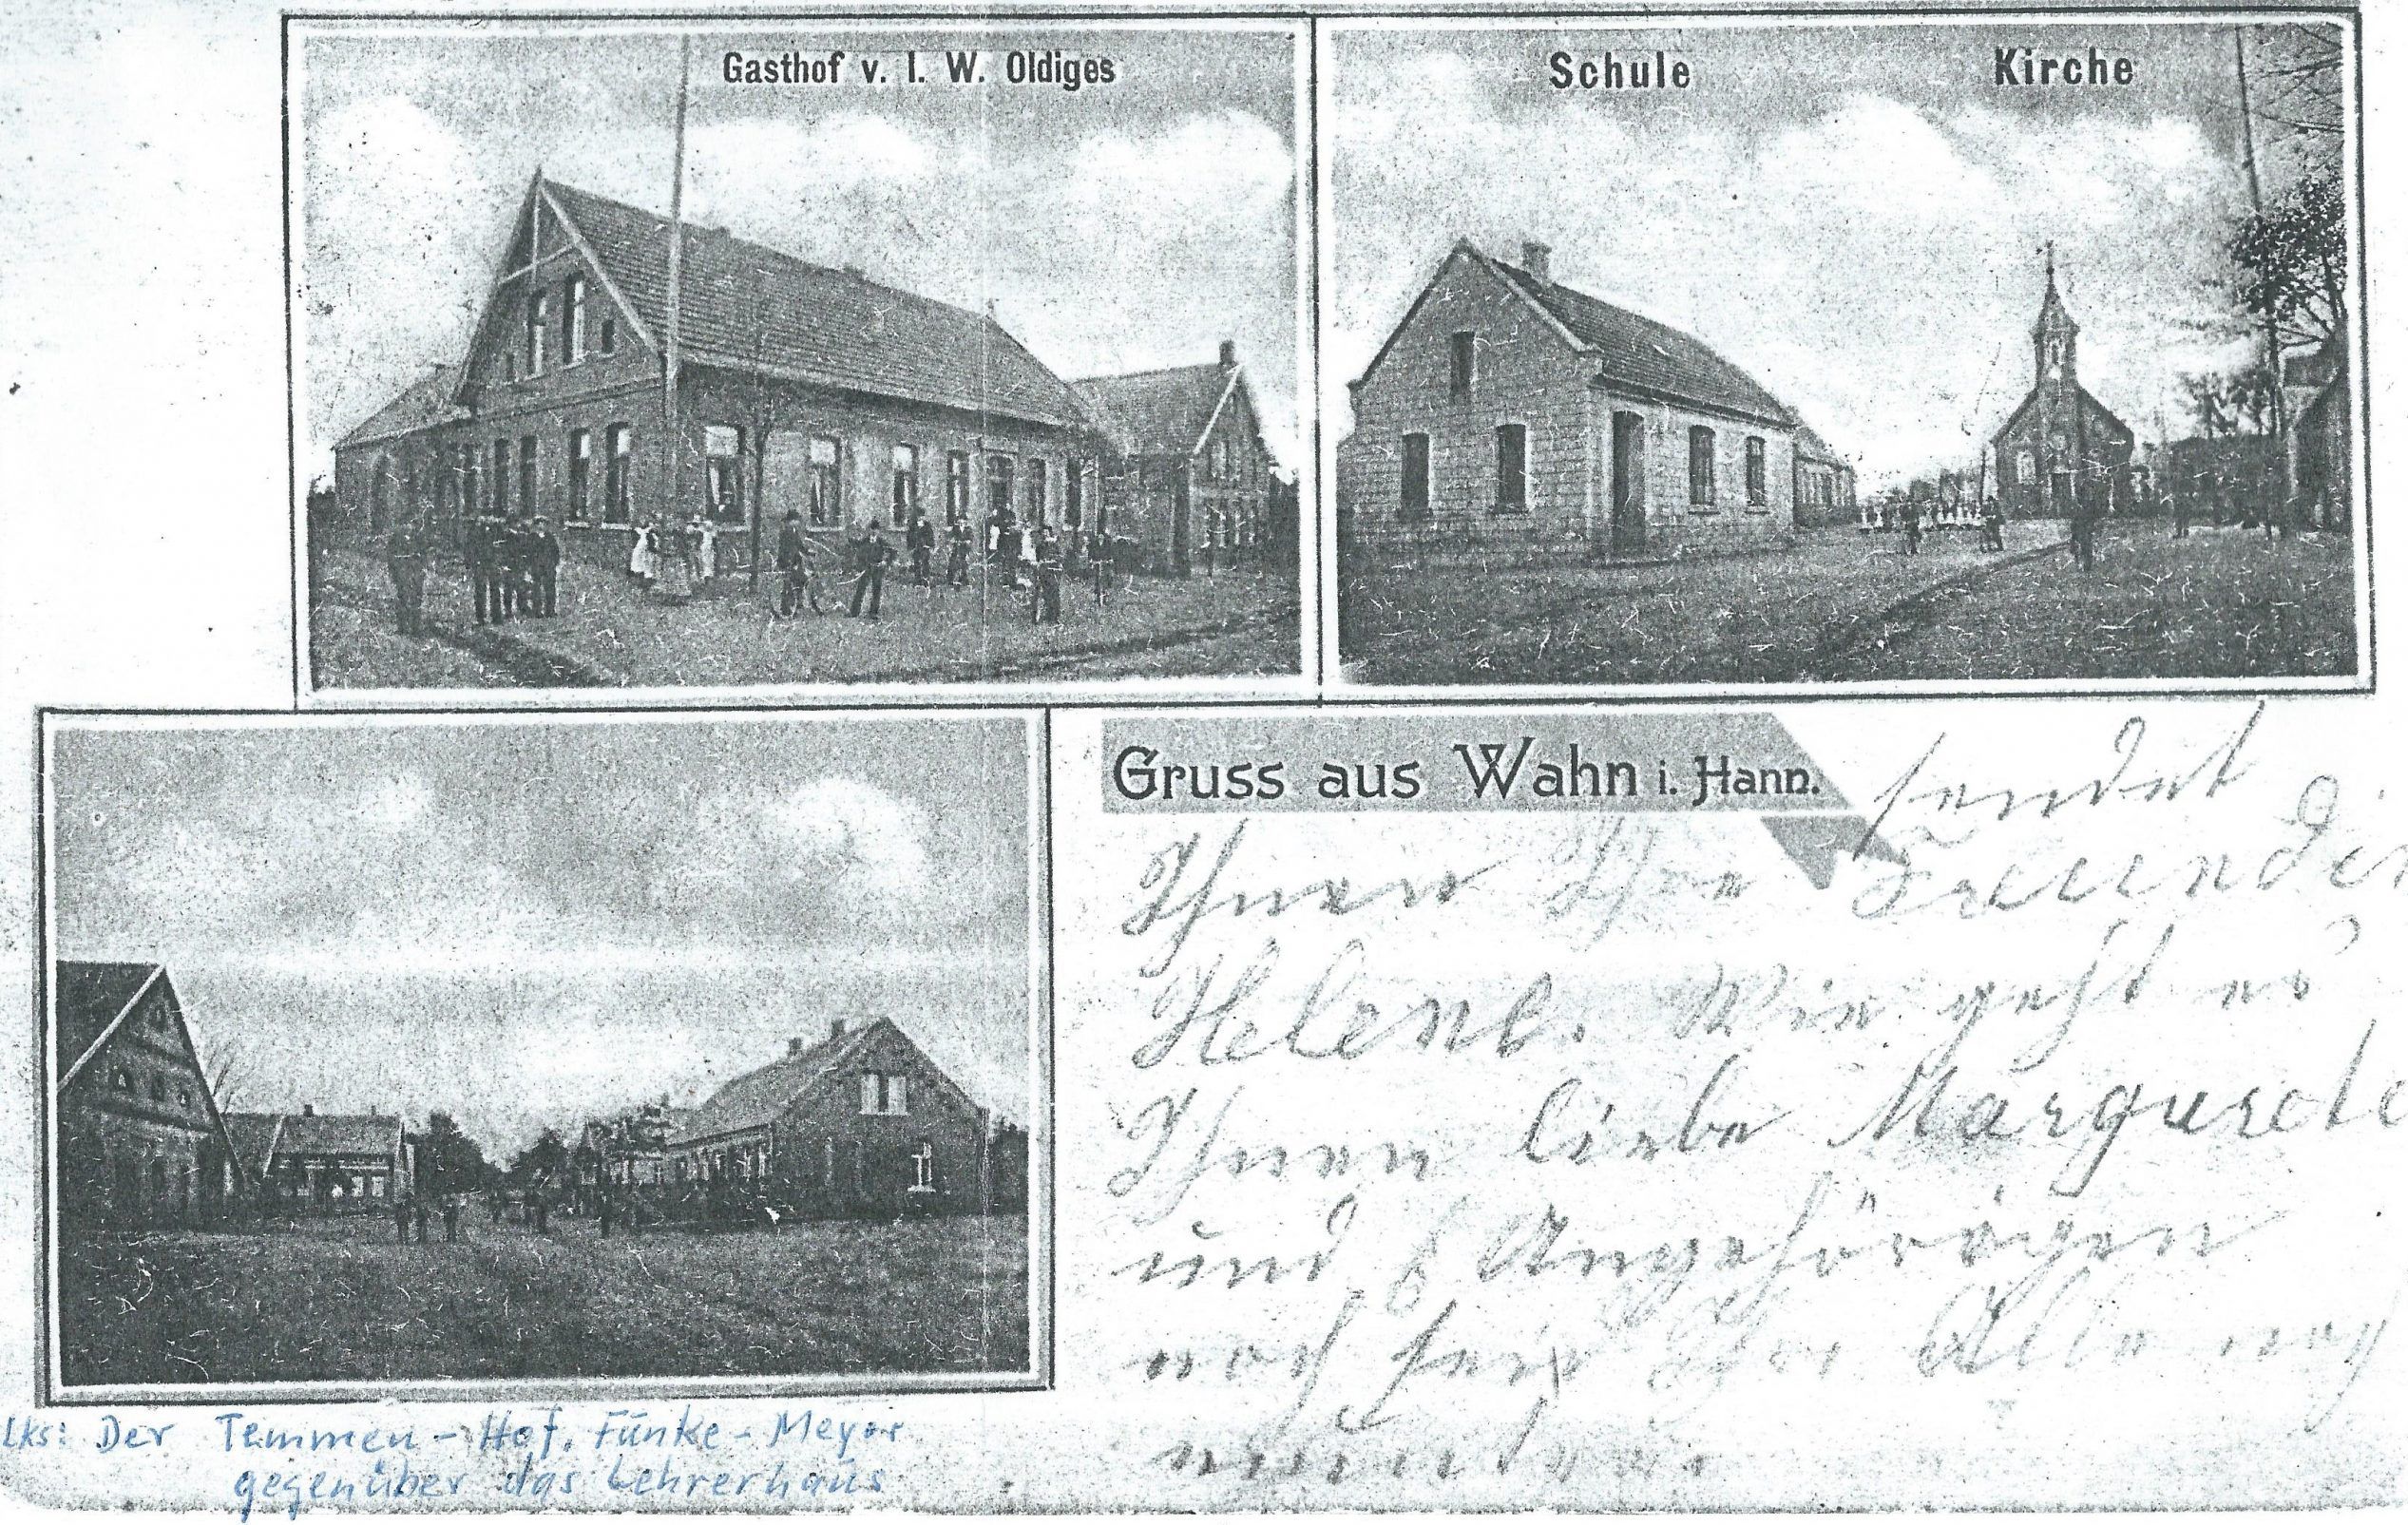 Gasthof v. I. W. Oldiges
Schule Kirche
Gruss aus Wahn i. Hann.
sendet
Ihnen Ihre Freundin
Helene. Wie geht es
Ihnen liebe
und Angehörigen
noch Alle
Lks: Der Temmen-Hof, Funke-Meyer
gegenüber das Lehrerhaus